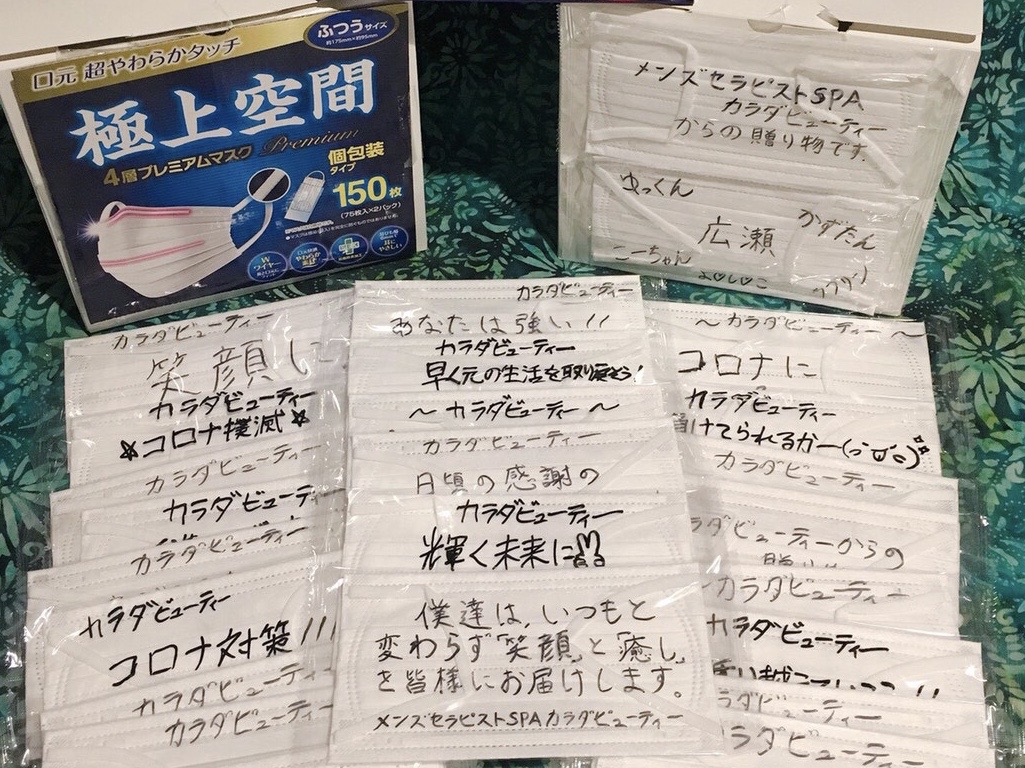 口元 超やわらかタッチ
ふつうサイズ
約175mm×約95mm
極上空間
Premium
4層プレミアムマスク
個包装
タイプ
150枚
(75枚入×2パック)
Wワイヤー
耳にやさしい
メンズセラピストSPA
カラダビューティー
からの贈り物です。
ゆっくん
かずたん
広瀬
こーちゃん
よ♡し♡こ
カラダビューティー
笑顔に
カラダビューティー
☆コロナ撲滅☆
カラダビューティー
カラダビューティー
カラダビューティー
カラダビューティー
コロナ対策!!!
カラダビューティー
カラダビューティー
カラダビューティー
あなたは強い!!
カラダビューティー
早く元の生活を取り戻そう!
~カラダビューティー~
カラダビューティー
日頃の感謝の
カラダビューティー
輝く未来に
僕達は、いつもと
変わらず「笑顔」と「癒し」
を皆様にお届けします。
メンズセラピストSPAカラダビューティー
~カラダビューティー~
コロナに
カラダビューティー
負けてられるかー
カラダビューティー
ラダビューティーからの
~カラダビューティー
カラダビューティー
ラダビューティー
ラダビューティー